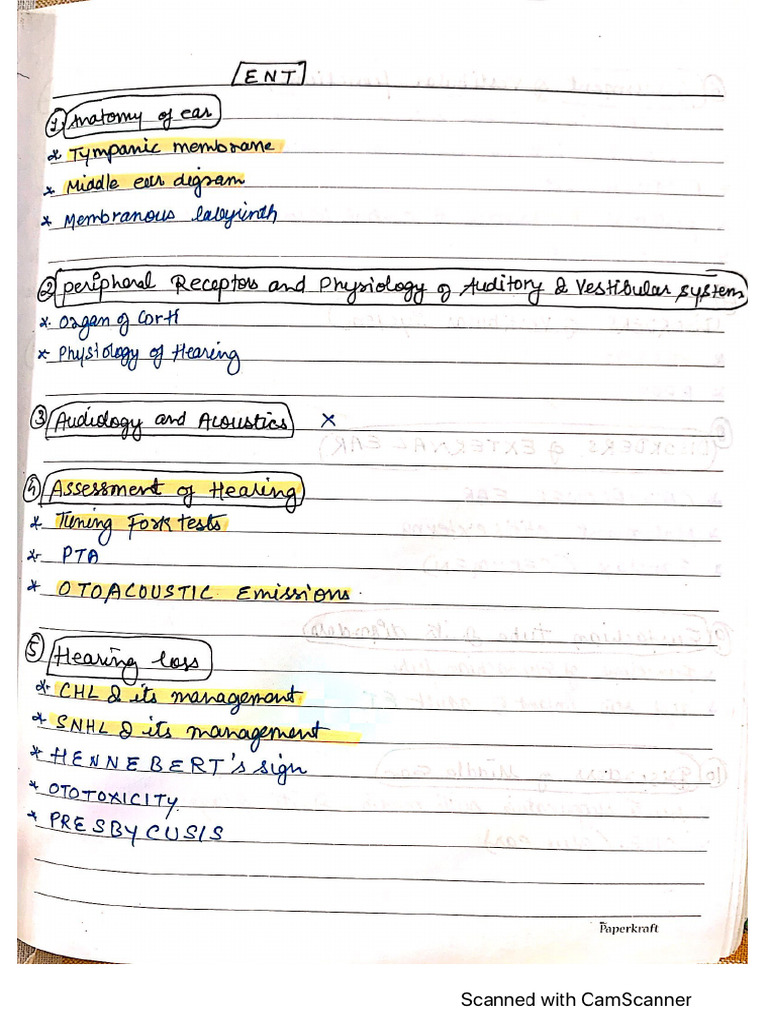 ENT
1. Anatomy of ear
* Tympanic membrane
* Middle ear digram
* Membranous labyrinth
② Peripheral Receptors and Physiology of Auditory & Vestibular System
* Organ of Corti
* Physiology of Hearing
③ Audiology and Acoustics ×
④ Assessment of Hearing
* Tuning Fork tests
* PTA
* OTOACOUSTIC Emissions
⑤ Hearing loss
* CHL & its management
* SNHL & its management
* HENNEBERT's sign
* OTOTOXICITY
* PRESBYCUSIS
Paperkraft
Scanned with CamScanner